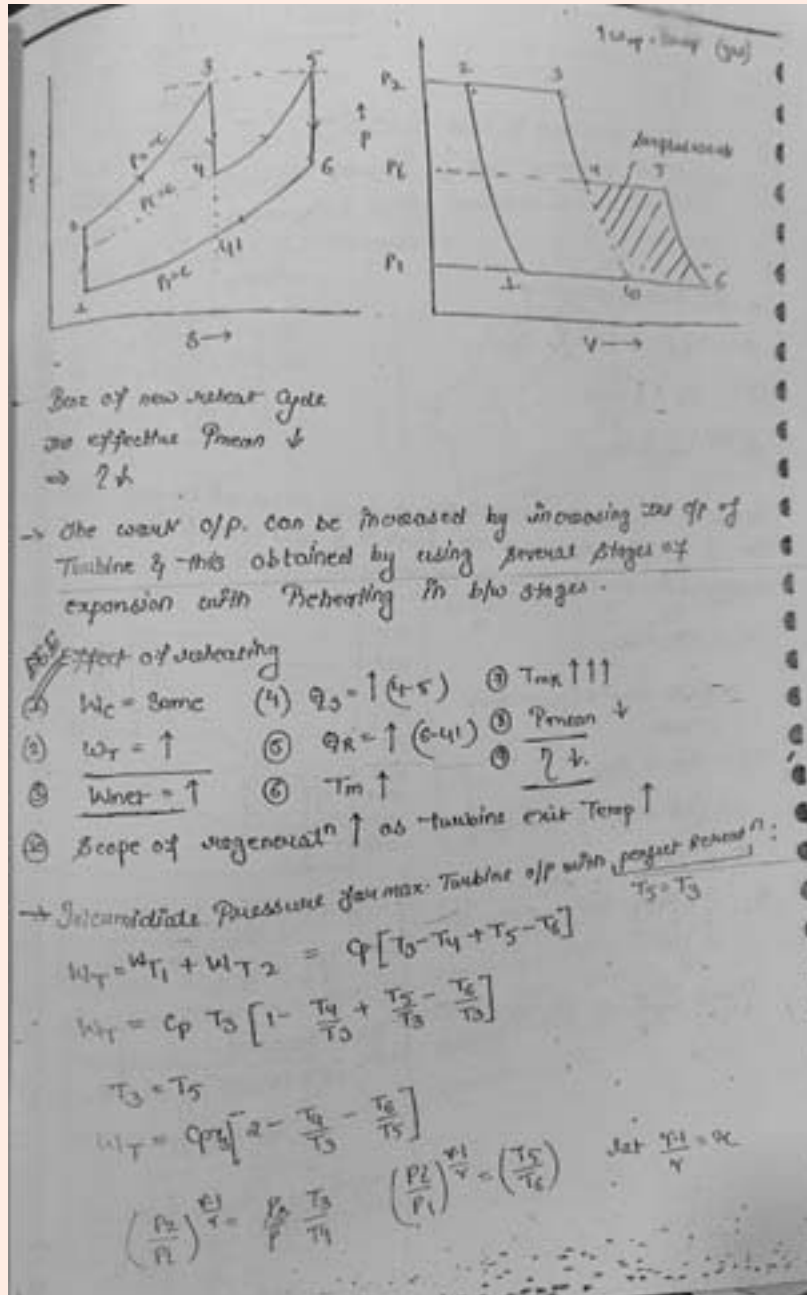 3
5
4
6
P=C
Pi=C
P1=C
41
1
S→
↑ P
P2
Pi
P1
2
3
4
5
1
6
V→
new reheat cycle
effective Pmean ↓
⇒ η↓
→ The work o/p. can be increased by increasing the o/p of
Turbine & this obtained by using several stages of
expansion with Reheating in b/w stages.
Effect of reheating
Wc = Same (4) Qs = ↑ (4-5) Tmr ↑↑↑
(2) WT = ↑ (5) QR = ↑ (6-41) (8) Pmean ↓
(3) Wnet = ↑ (6) Tm ↑ (9) η ↓
(10) Scope of regeneratⁿ ↑ as turbine exit Temp ↑
→ Intermidiate Pressure for max. Turbine o/p with perfect :
T5 = T3
WT = WT1 + WT2 = Cp[T3-T4+T5-T6]
WT = Cp T3 [1 - T4/T3 + T5/T3 - T6/T3]
T3 = T5
WT = CpT3[2 - T4/T3 - T6/T5]
(P2/Pi)^(γ-1/γ) = T3/T4 (Pi/P1)^(γ-1/γ) = (T5/T6) let γ-1/γ = x